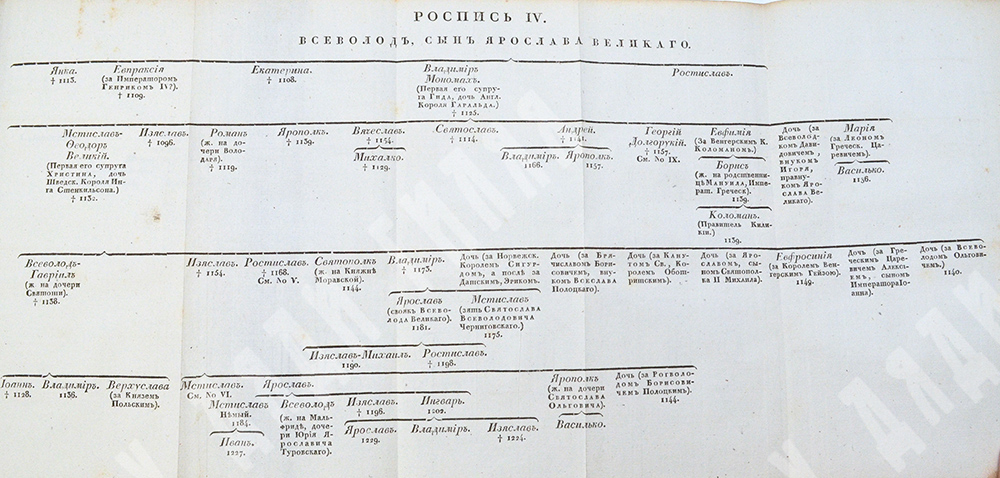 РОСПИСЬ IV.
ВСЕВОЛОДЪ, СЫНЪ ЯРОСЛАВА ВЕЛИКАГО.
Янка.
† 1113.
Евпраксія
(за Императоромъ
Генрикомъ IV?).
† 1109.
Екатерина.
† 1108.
Владиміръ
Мономахъ.
(Первая его супру-
га Гида, дочь Англ.
Короля Гаральда.)
† 1125.
Ростиславъ.
Мстиславъ-
Ѳеодоръ
Великій.
(Первая его супруга
Христина, дочь
Шведск. Короля Ин-
га Стенкильсона.)
† 1132.
Изяславъ.
† 1096.
Романъ
(ж. на до-
чери Воло-
даря).
† 1119.
Ярополкъ.
† 1139.
Вячеславъ.
† 1154.
Михалко.
† 1129.
Святославъ.
† 1114.
Андрей.
† 1141.
Владиміръ.
1166.
Ярополкъ.
† 1157.
Георгій
Долгорукій.
† 1157.
См. No IX.
Евфимія
(За Венгерскимъ К.
Коломаномъ.)
Борисъ
(ж. на родственни-
цѣ Мануила, Импе-
рат. Греческ.)
1139.
Коломанъ.
(Правитель Кили-
кіи.)
1139.
Дочь (за
Всеволод-
комъ Да-
видовичемъ,
внукомъ
Игоря,
правну-
комъ Яро-
слава Ве-
ликаго).
Марія
(за Леономъ
Греческ. Ца-
ревичемъ).
Василько.
† 1136.
Всеволодъ-
Гавріилъ
(ж на дочери
Святоши).
† 1138.
Изяславъ.
† 1154.
Ростиславъ.
† 1168.
См. No V.
Святополкъ
(ж. на Княжнѣ
Моравской).
† 1144.
Владиміръ.
† 1173.
Дочь (за Норвежск.
Королемъ Сигур-
домъ, а послѣ за
Датскимъ, Эрикомъ.
Дочь (за Бря-
числавомъ Бори-
совичемъ, вну-
комъ Всеслава
Полоцкаго).
Дочь (за Кану-
томъ Св., Ко-
ролемъ Обот-
ритскимъ.)
Дочь (за Яро-
славомъ, сы-
номъ Святопол-
ка II Михаила).
Евфросинія
(за Королемъ Вен-
герскимъ Гейзою).
1149.
Дочь (за Гре-
ческимъ Царе-
вичемъ Алексі-
емъ, сыномъ
Императора Іо-
анна).
Дочь (за Всево-
лодомъ Ольгови-
чемъ).
1140.
Ярославъ
(своякъ Всево-
лода Великаго).
1181.
Мстиславъ
(зять Святослава
Всеволодовича
Черниговскаго.)
1175.
Изяславъ-Михаилъ.
1190.
Ростиславъ.
† 1198.
Іоаннъ.
† 1128.
Владиміръ.
1136.
Верхуслава
(за Княземъ
Польскимъ).
Мстиславъ.
См. No VI.
Ярославъ.
Мстиславъ
Нѣмый.
1184.
Иванъ.
1227.
Всеволодъ
(ж. на Маль-
фридѣ, доче-
ри Юрія Я-
рославича
Туровскаго).
Изяславъ.
† 1196.
Ингварь.
1202.
Ярославъ.
1229.
Владиміръ.
Изяславъ.
† 1224.
Ярополкъ
(ж. на дочери
Святослава
Ольговича).
Василько.
Дочь (за Рогволо-
домъ Борисови-
чемъ Полоцкимъ).
1144.